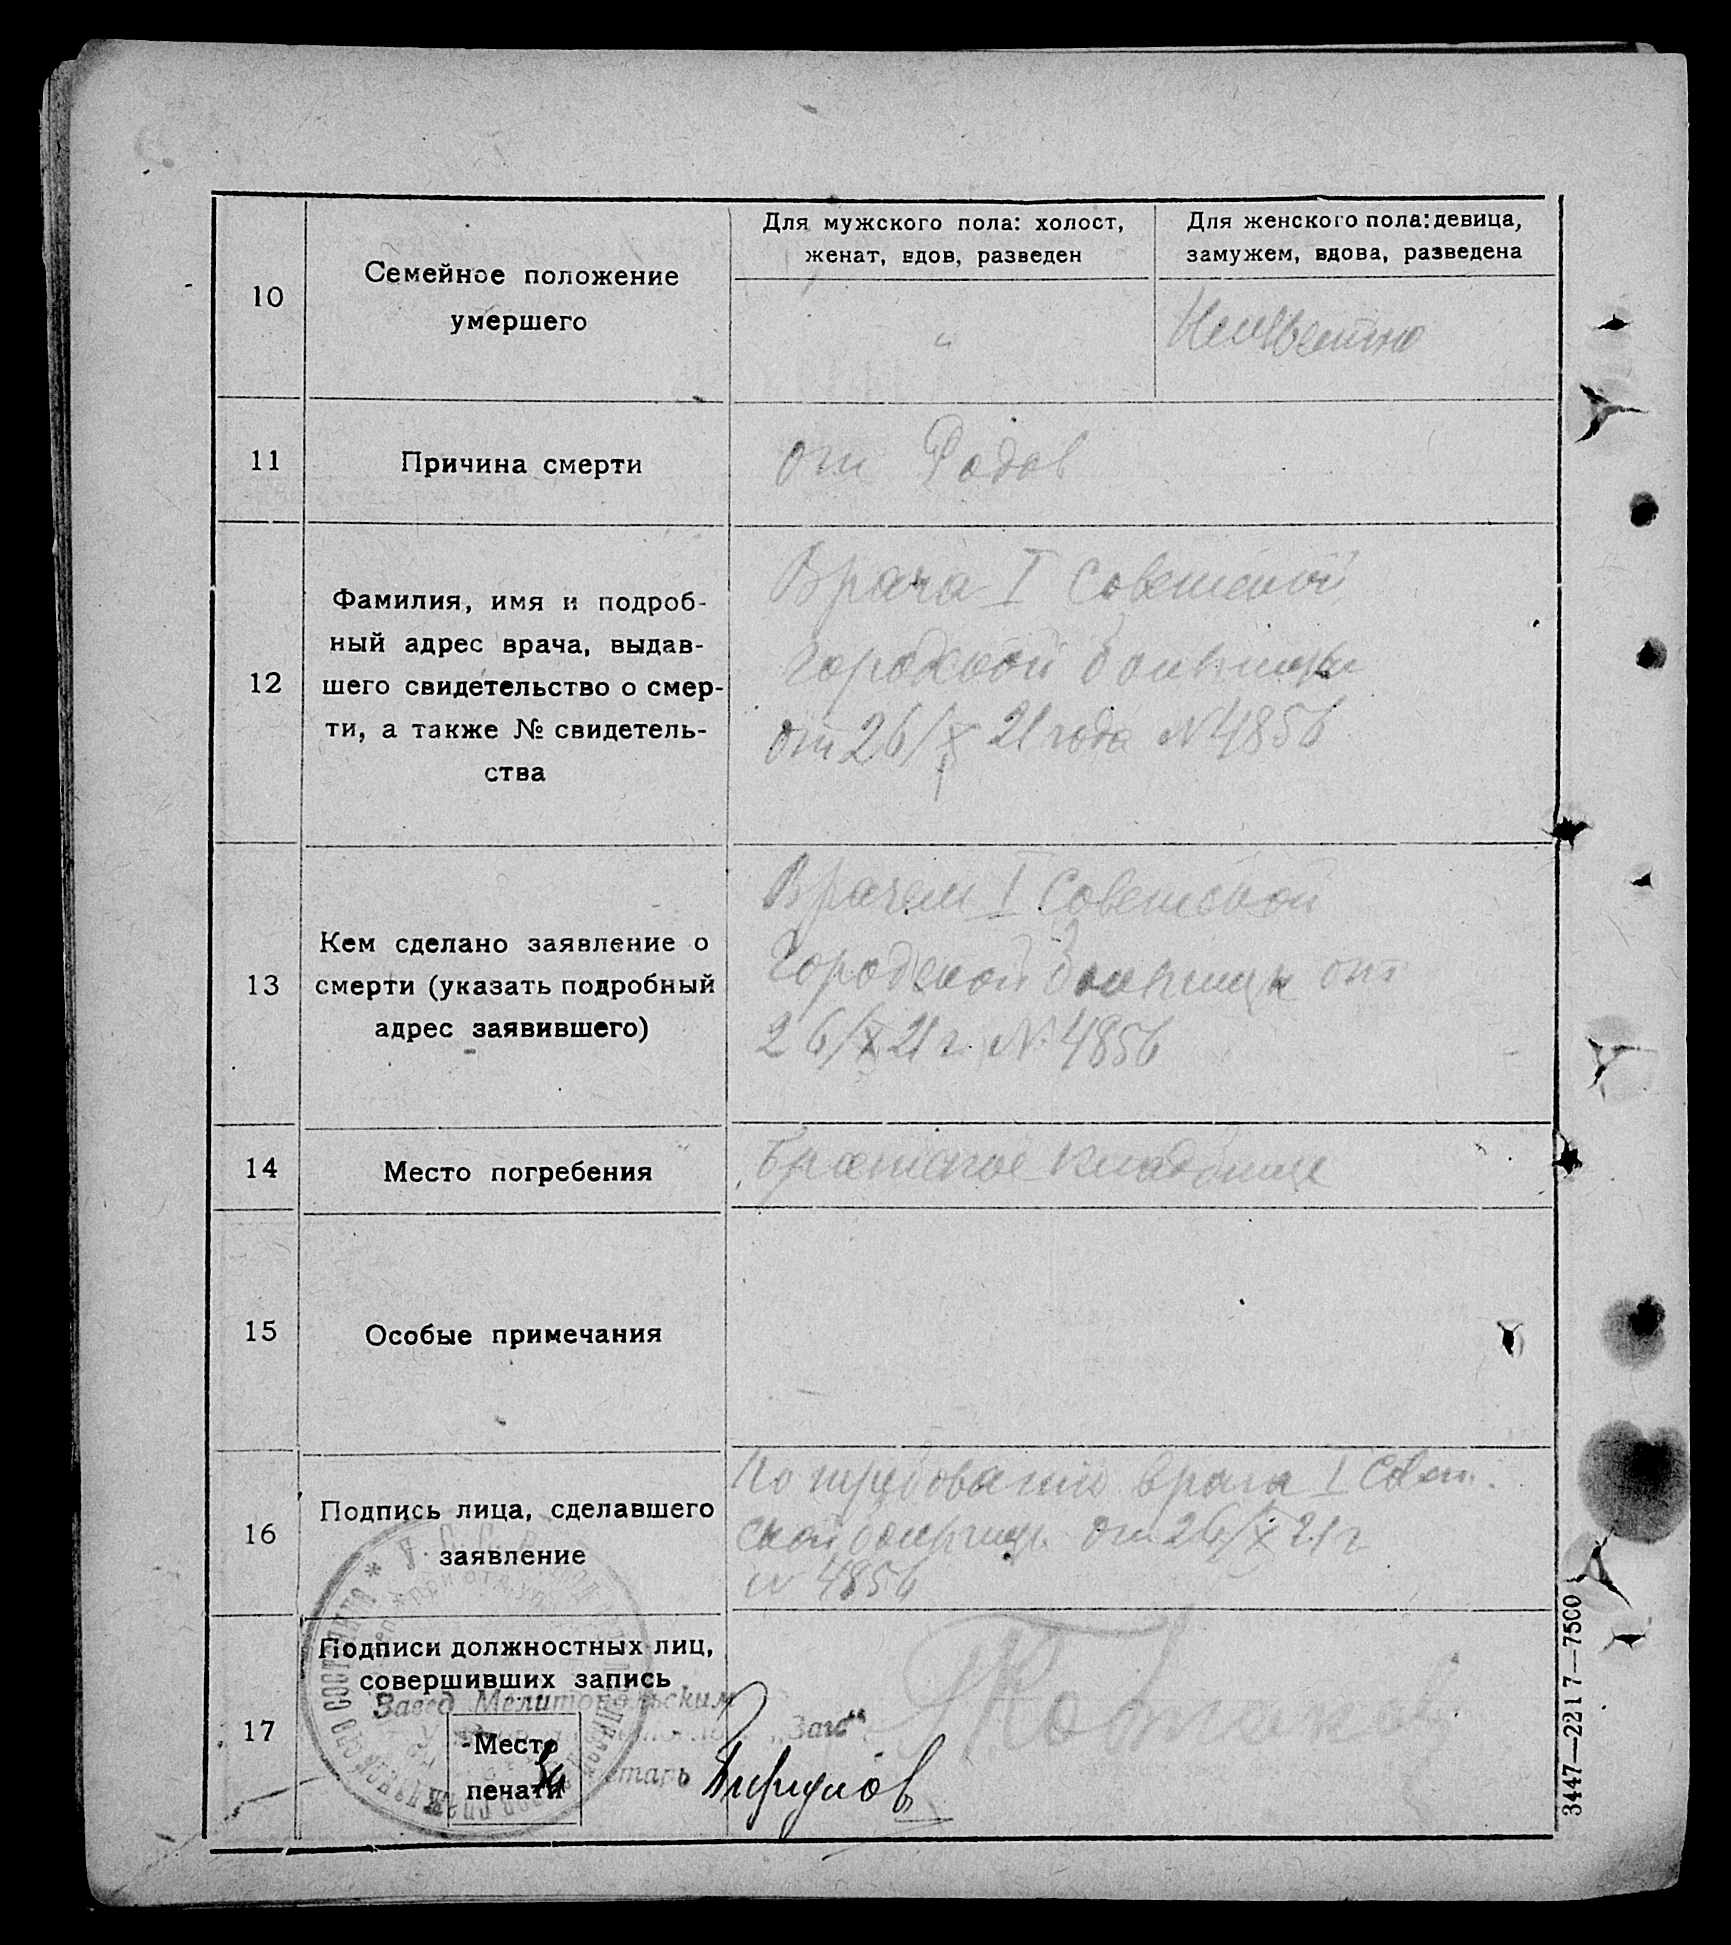 10
Семейное положение
умершего
Для мужского пола: холост,
женат, вдов, разведен
"
Для женского пола: девица,
замужем, вдова, разведена
Неизвестно
11
Причина смерти
от Родов
12
Фамилия, имя и подроб-
ный адрес врача, выдав-
шего свидетельство о смер-
ти, а также № свидетель-
ства
Врача I Советской
городской больницы
от 26/X 21 года N 4856
13
Кем сделано заявление о
смерти (указать подробный
адрес заявившего)
Врачем I Советской
Городской больницы от
26/X 21 г. N. 4856
14
Место погребения
Братское кладбище
15
Особые примечания
16
Подпись лица, сделавшего
заявление
По требованию врача I Совет.
ской больницы от 26/X 21 г
N 4856
17
Подписи должностных лиц,
совершивших запись
Завед. Мелитопольским
„Загс"
Место
печати
За
3447—2217—7500